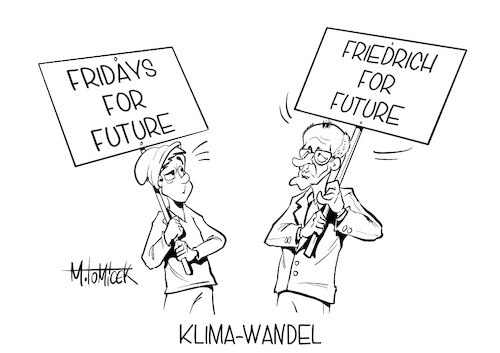 FRIDAYS
FOR
FUTURE
FRIEDRICH
FOR
FUTURE
M.TOMICEK
KLIMA-WANDEL